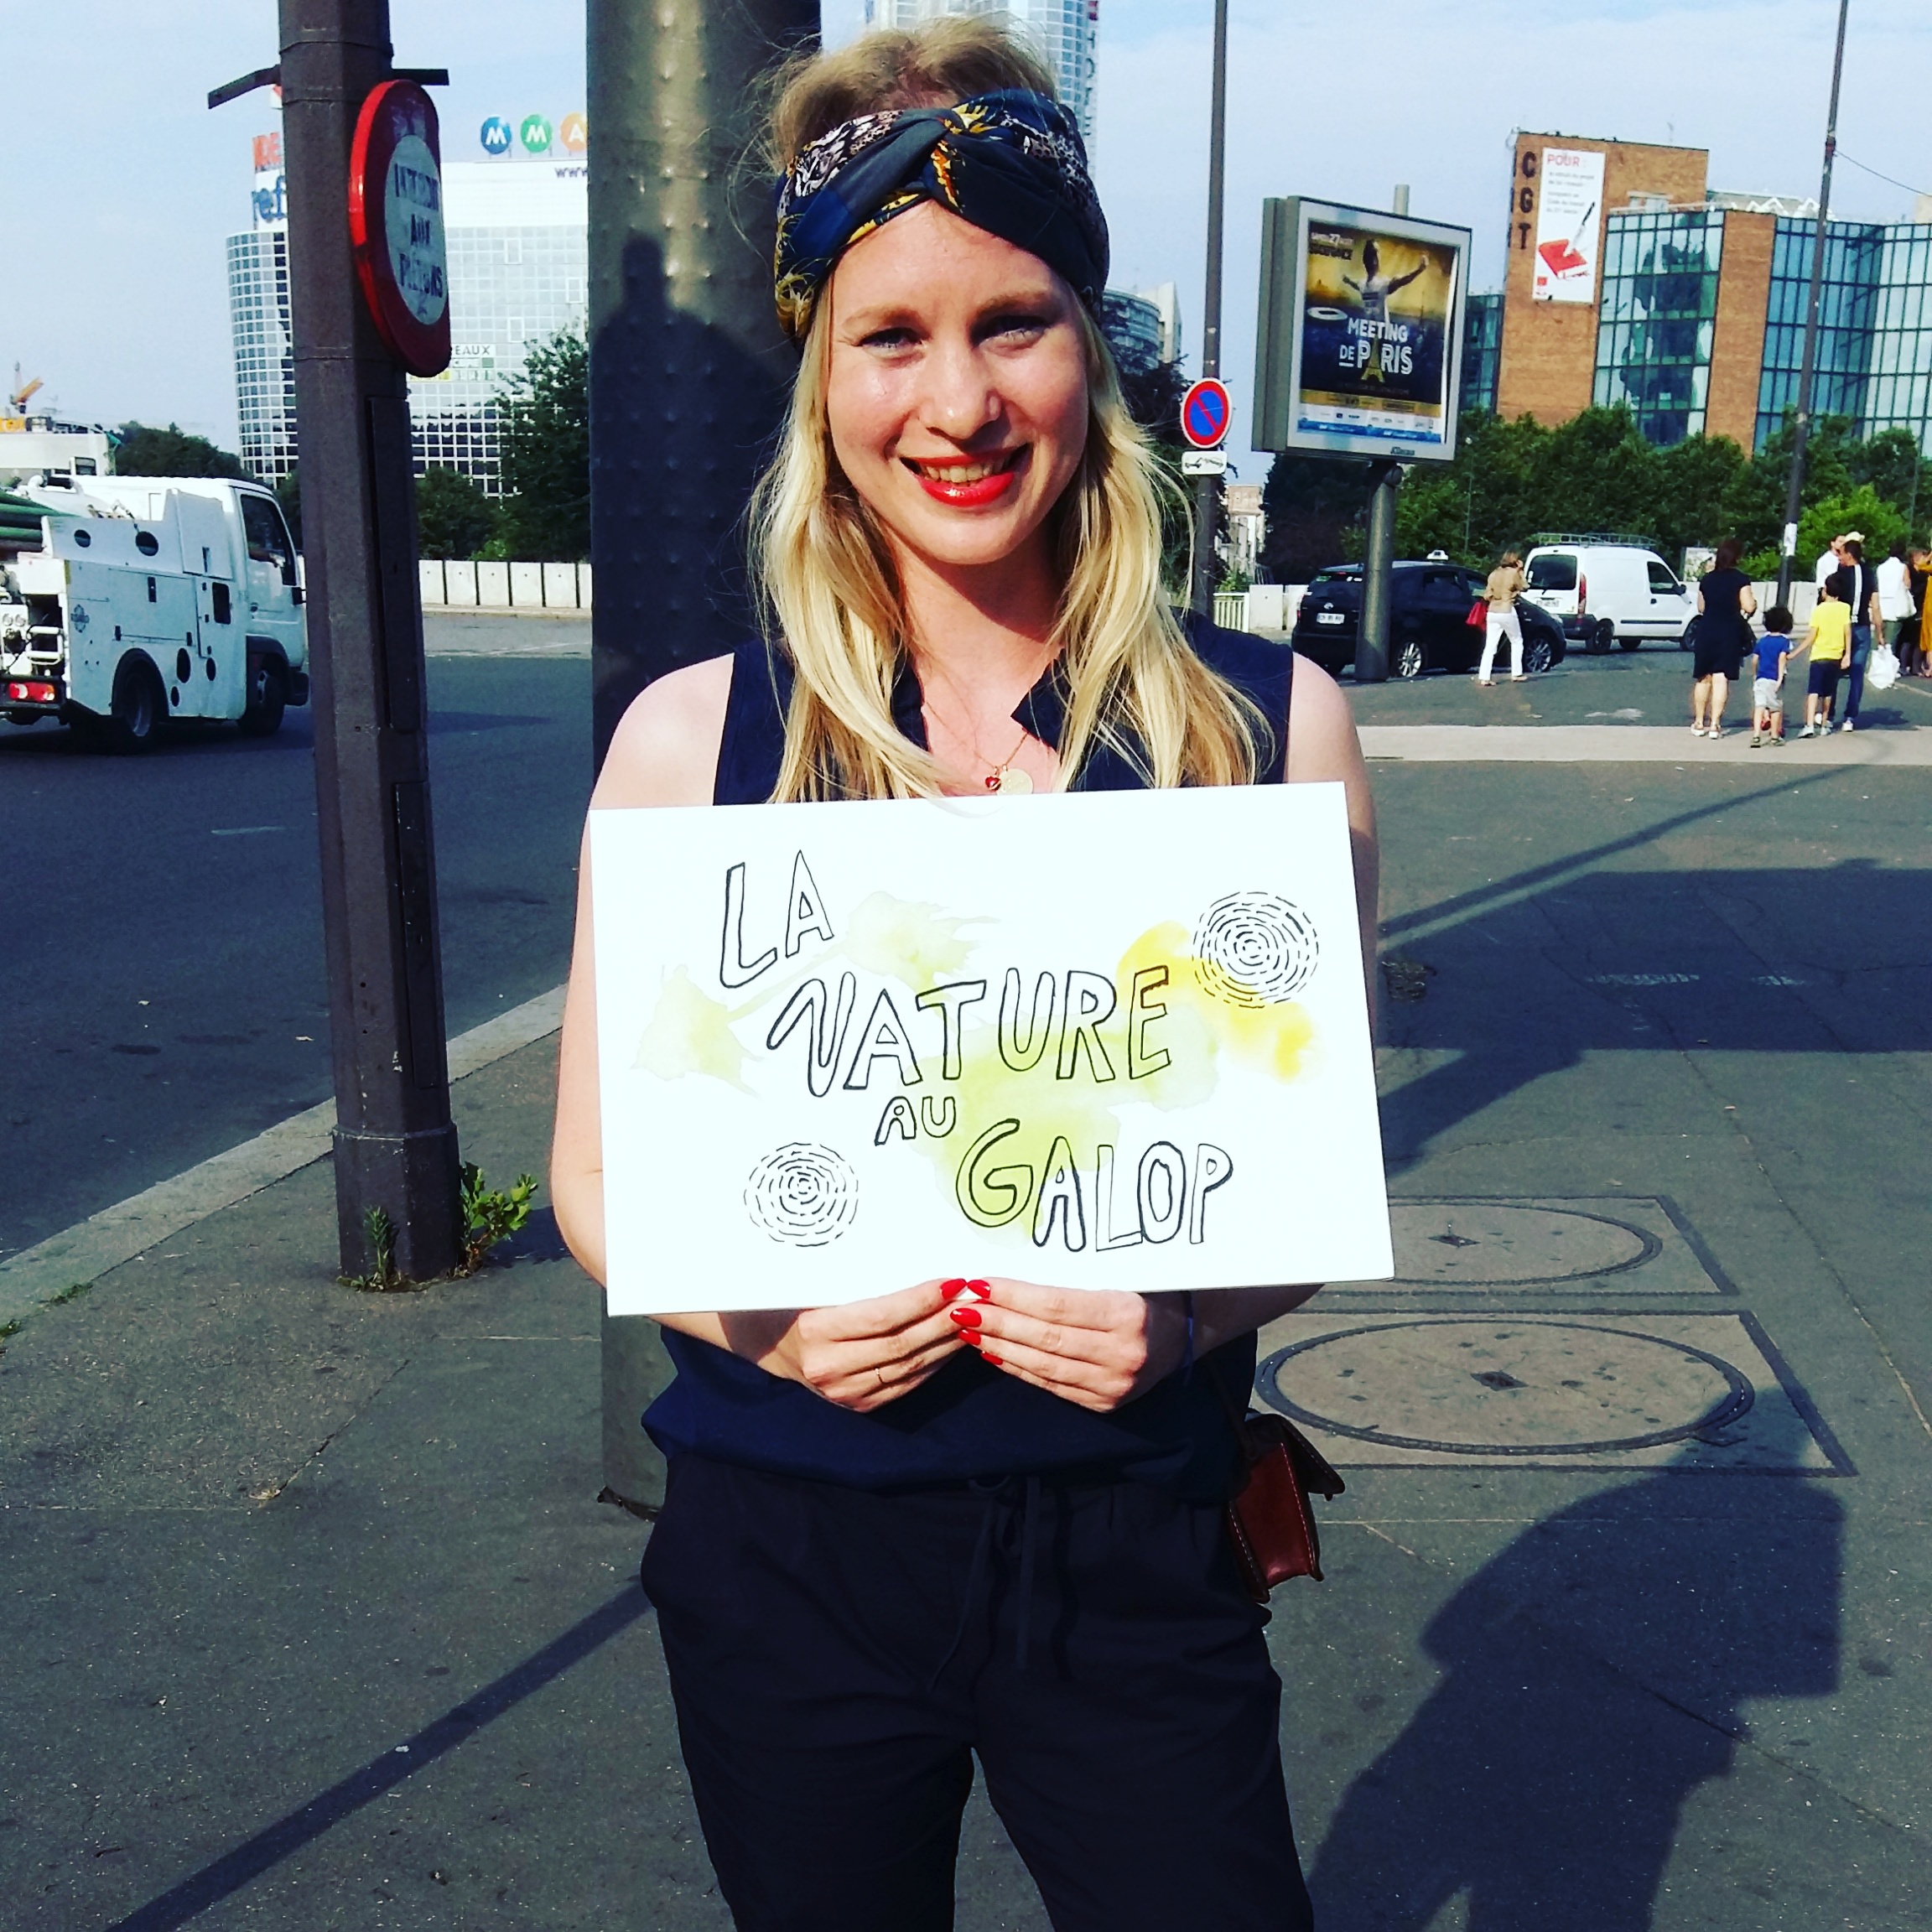 LA
NATURE
AU
GALOP
INTERDIT
AUX
PIÉTONS
M M A
www
EAUX
CGT
POUR :
MEETING
DE PARIS